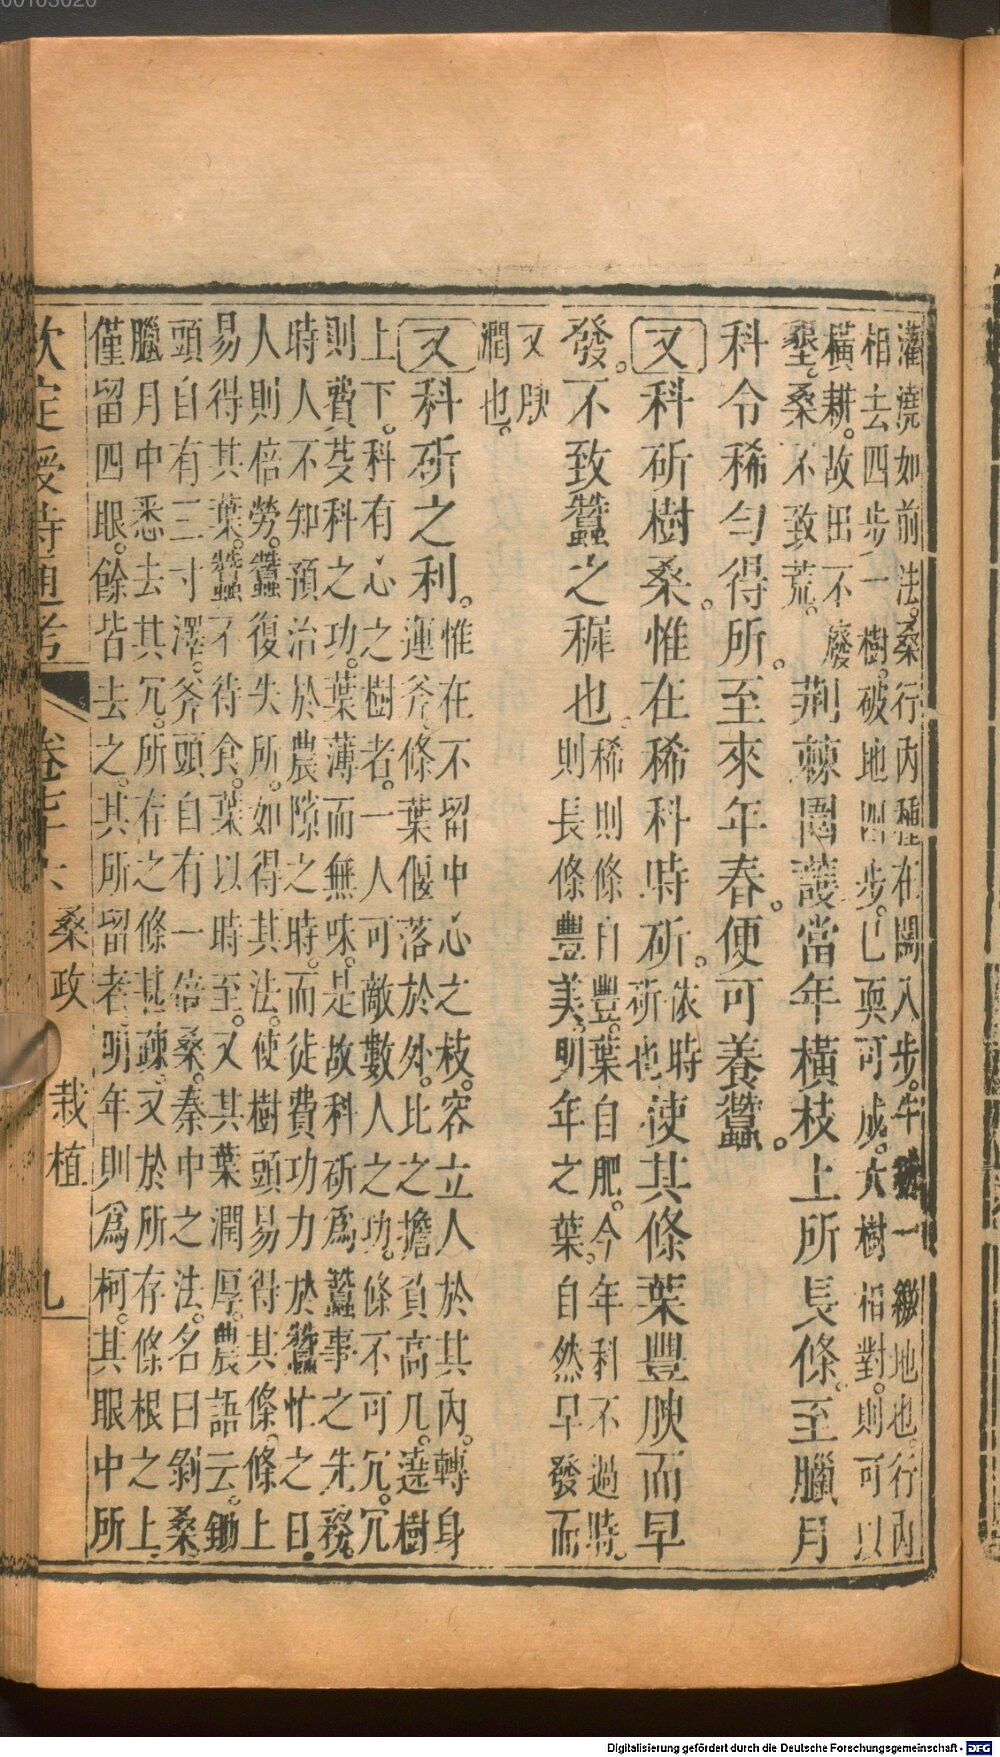 灌澆如前法。桑行內種在闊八步。牛耕一繳地也。行內
相去四步一樹。破地四步。已耎可成。大樹相對。則可以
橫耕。故田不廢
墾。桑不致荒。荆棘圍護當年橫枝上所長條。至臘月
科令稀勻得所。至來年春。便可養蠶。
又科斫樹桑。惟在稀科時斫。依時
斫也使其條葉豐腴而早
發。不致蠶之稺也。稀則條自豐。葉自肥。今年科不過時。
則長條豐美。明年之葉。自然早發而
又腴
潤也。
又科斫之利。惟在不留中心之枝。容立人於其內。轉身
運斧。條葉偃落於外。比之擔負高几。遶樹
上下。科有心之樹者。一人可敵數人之功。條不可冗。冗
則費芟科之功。葉薄而無味。是故科斫爲蠶事之先務。
時人不知預治於農隙之時。而徒費功力於蠶忙之日。
人則倍勞。蠶復失所。如得其法。使樹頭易得其條。條上
易得其葉。蠶不待食。葉以時至。又其葉潤厚。農語云。鋤
頭自有三寸澤。斧頭自有一倍桑。秦中之法。名曰剝桑
臘月中悉去其冗。所存之條甚疎。又於所存條根之上。
僅留四眼。餘皆去之。其所留者。明年則爲柯。其眼中所
欽定授時通考
卷七十
桑政
栽植
九
Digitalisierung gefördert durch die Deutsche Forschungsgemeinschaft - DFG